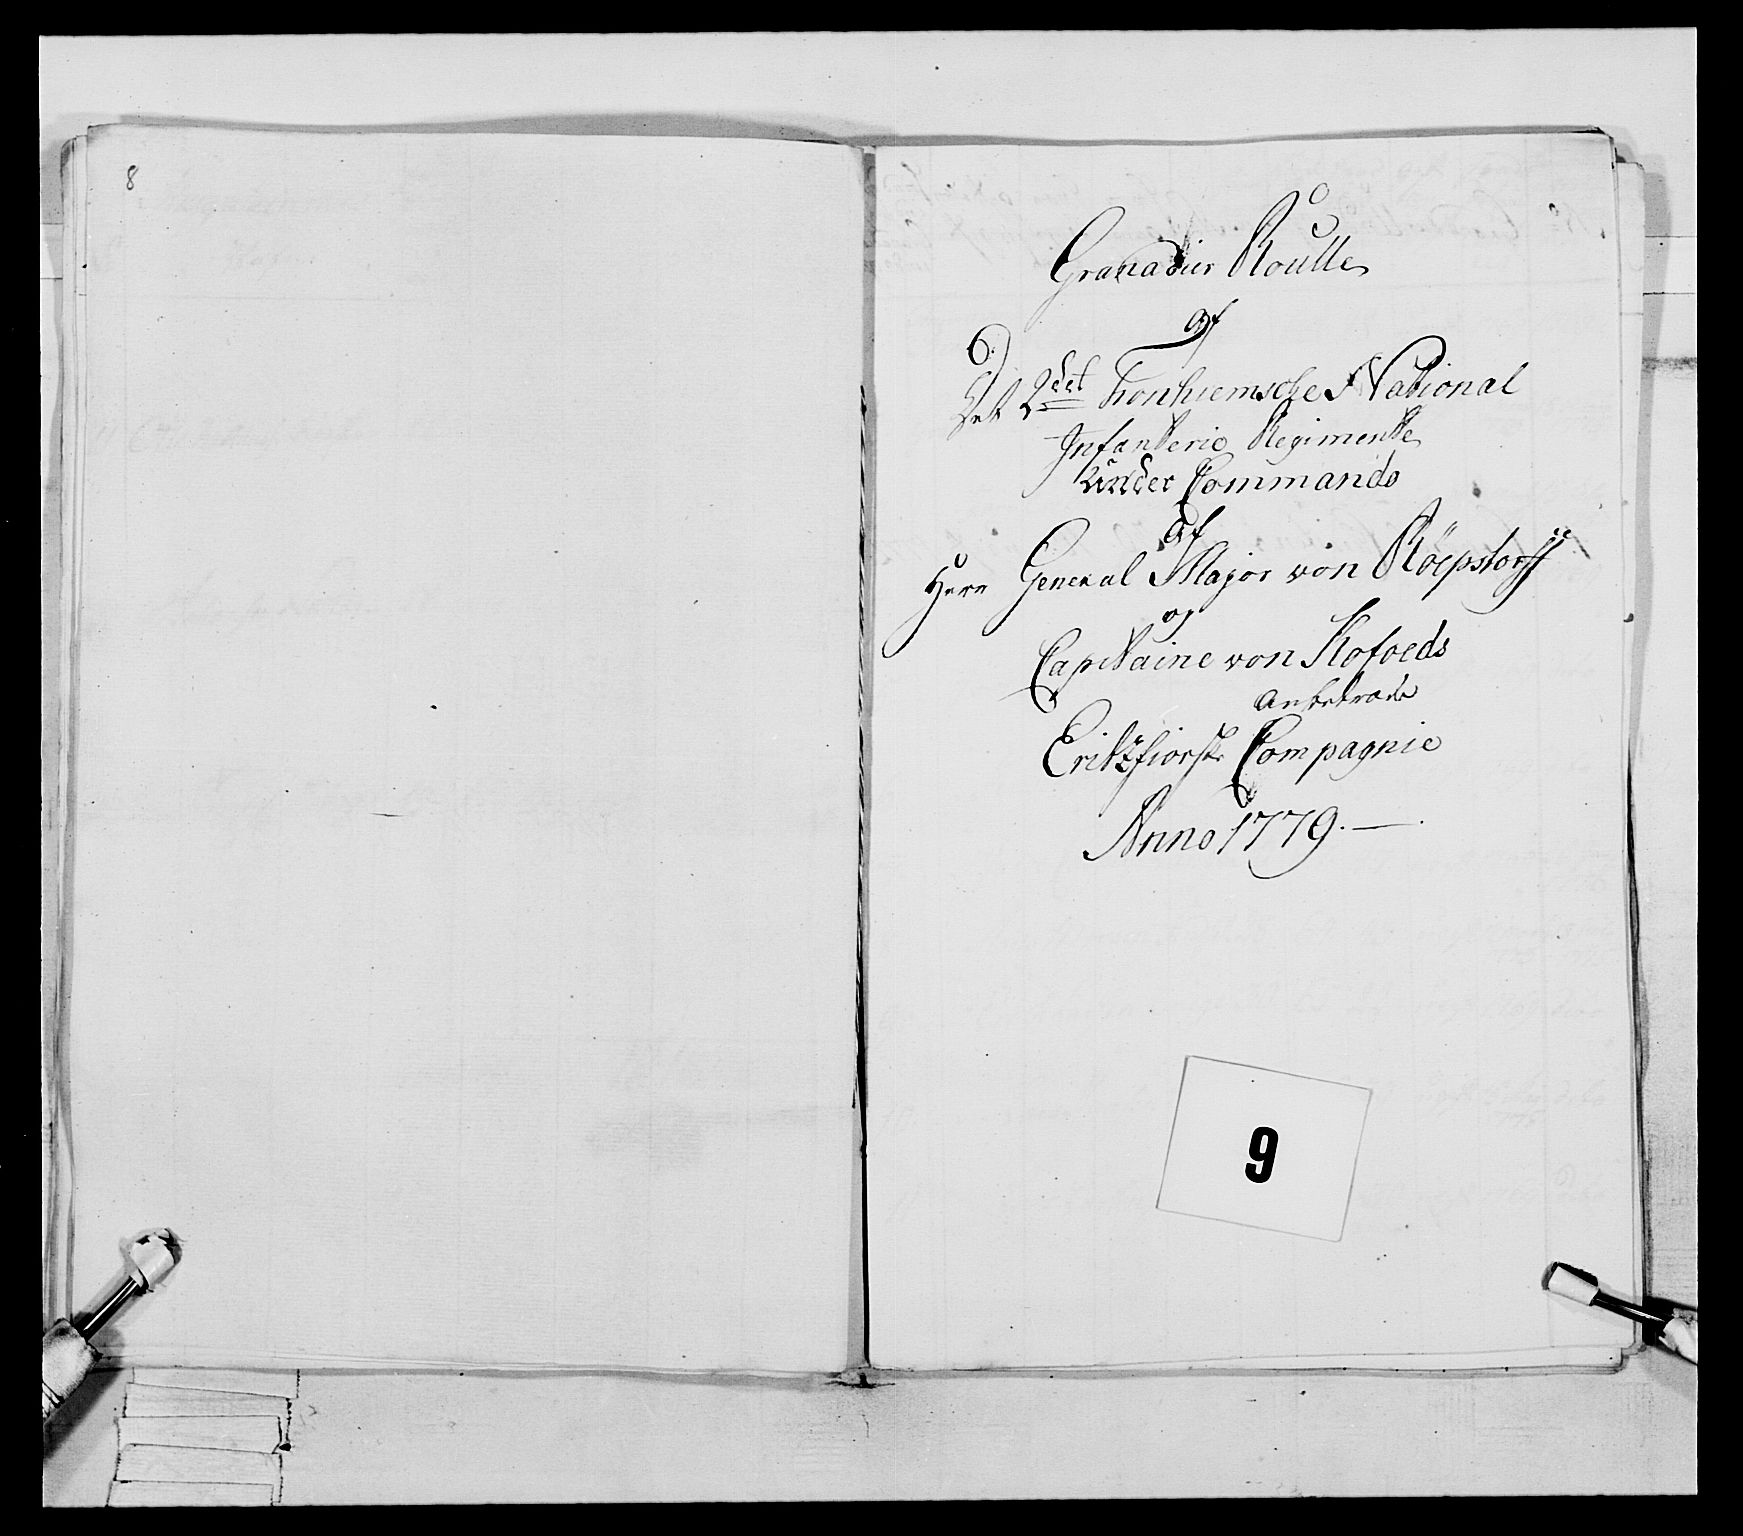 8
Granadier Roulle
af
Det 2det Tronhiemsche National
Infanterie Regimente
Under Commando
af
Herr General Major von Röepstorff
og
Capitaine von Kofoeds
anbetroede
Eritzfiorske Compagnie
Anno 1779.
9